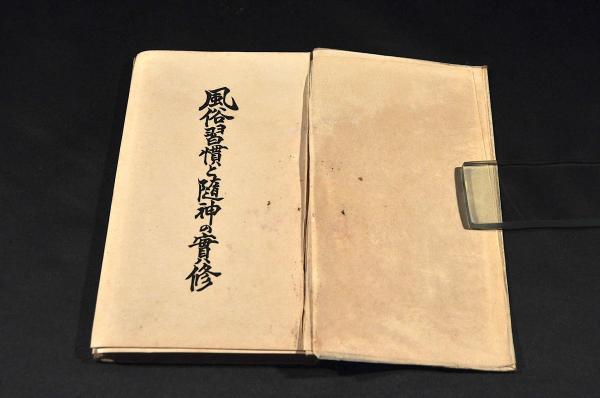 風俗習慣と隨神の實修